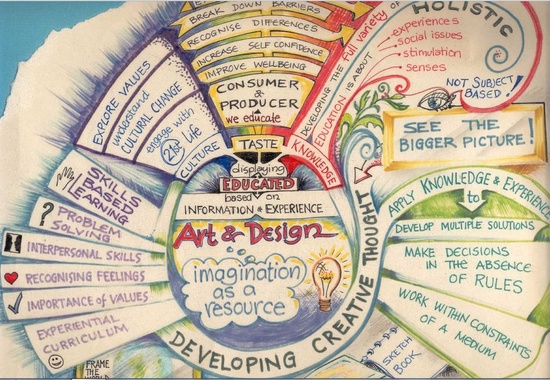 BREAK DOWN BARRIERS
RECOGNISE DIFFERENCES
INCREASE SELF CONFIDENCE
IMPROVE WELLBEING
CONSUMER
&
PRODUCER
we educate
TASTE
displaying
EDUCATED
based on
INFORMATION & EXPERIENCE
Art & Design
is
imagination
as a
resource
DEVELOPING CREATIVE THOUGHT
EXPLORE VALUES
understand
CULTURAL CHANGE
engage with
21st Life
CULTURE
SKILLS
BASED
LEARNING
? PROBLEM
SOLVING
INTERPERSONAL SKILLS
RECOGNISING FEELINGS
IMPORTANCE of VALUES
EXPERIENTIAL
CURRICULUM
FRAME
THE
DEVELOPING THE full variety of
EDUCATION IS ABOUT
KNOWLEDGE
HOLISTIC
experiences
social issues
stimulation
senses
NOT SUBJECT
BASED!
SEE THE
BIGGER PICTURE!
APPLY KNOWLEDGE & EXPERIENCE
to
DEVELOP MULTIPLE SOLUTIONS
MAKE DECISIONS
IN THE ABSENCE
OF RULES
WORK WITHIN CONSTRAINTS
OF A MEDIUM
SKETCH
BOOK